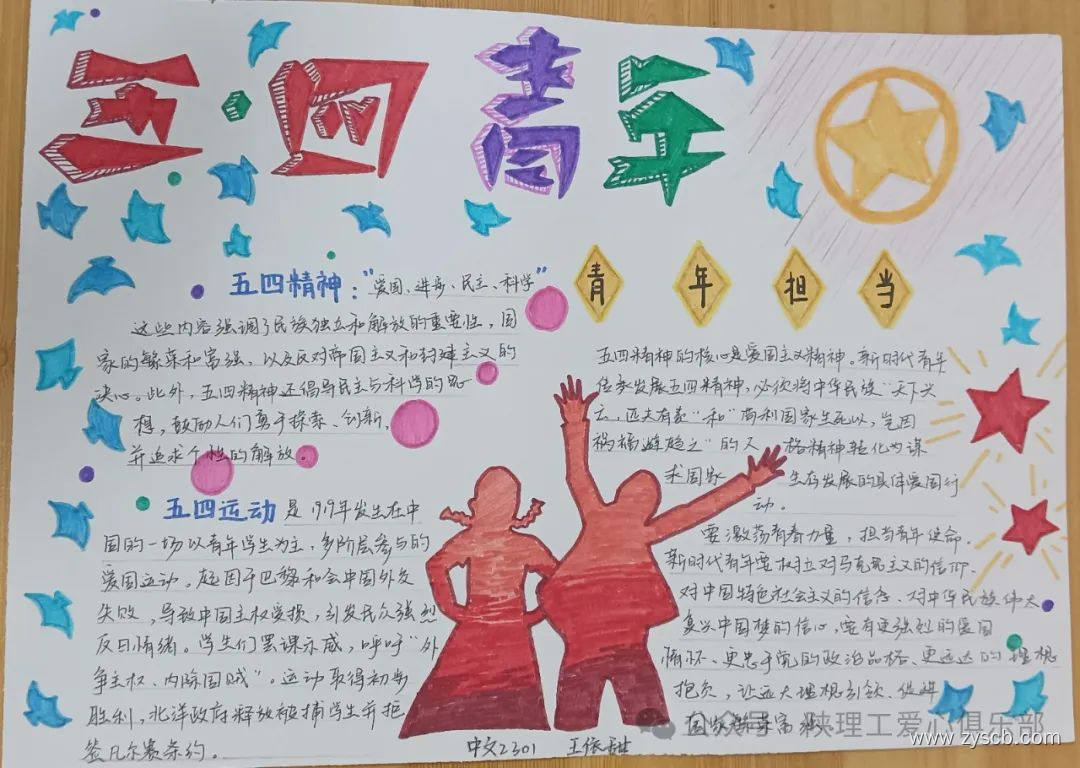 五四青年
五四精神："爱国、进步、民主、科学"
这些内容强调了民族独立和解放的重要性，国
家的繁荣和富强，以及反对帝国主义和封建主义的
决心。此外，五四精神还倡导民主与科学的思
想，鼓励人们勇于探索、创新，
并追求个性的解放。
五四运动是1919年发生在中
国的一场以青年学生为主，多阶层参与的
爱国运动。起因于巴黎和会中国外交
失败，导致中国主权受损，引发民众强烈
反日情绪。学生们罢课示威，呼吁"外
争主权、内除国贼"。运动取得初步
胜利，北洋政府释放被捕学生并拒
签凡尔赛条约。
青年担当
五四精神的核心是爱国主义精神。新时代青年
传承发展五四精神，必须将中华民族"天下兴
亡，匹夫有责"和"苟利国家生死以，岂因
祸福避趋之"的人格精神转化为谋
求国家生存发展的具体爱国行
动。
要激荡青春力量，担当青年使命。
新时代青年要树立对马克思主义的信仰、
对中国特色社会主义的信念、对中华民族伟大
复兴中国梦的信心，要有更强烈的爱国
情怀、更忠于党的政治品格、更远大的理想
抱负，让远大理想引领、
国家
中文2301 王依甜
陕理工爱心俱乐部
www.zyscb.com